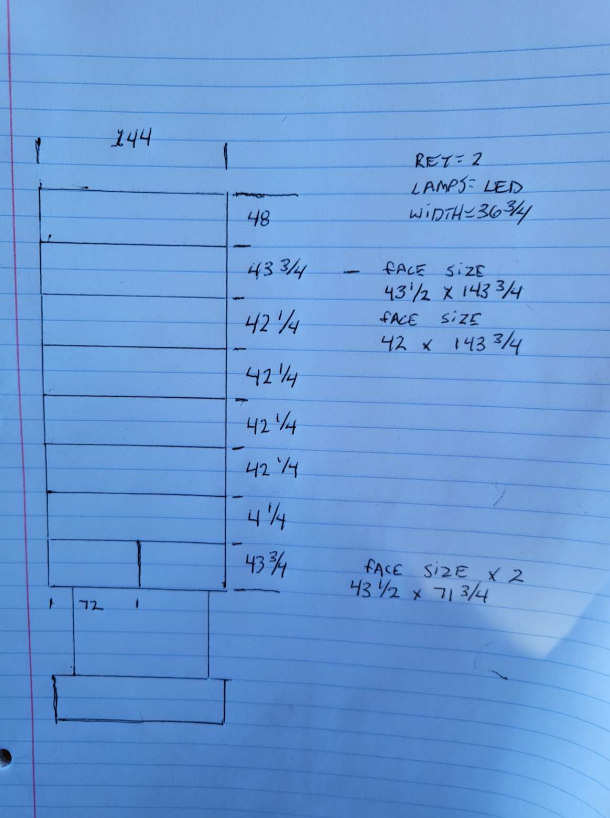 144
RET = 2
LAMPS = LED
WIDTH = 36 3/4
48
43 3/4 — FACE SIZE
43 1/2 X 143 3/4
42 1/4 FACE SIZE
42 X 143 3/4
42 1/4
42 1/4
42 1/4
4 1/4
43 3/4 FACE SIZE X 2
43 1/2 X 71 3/4
72